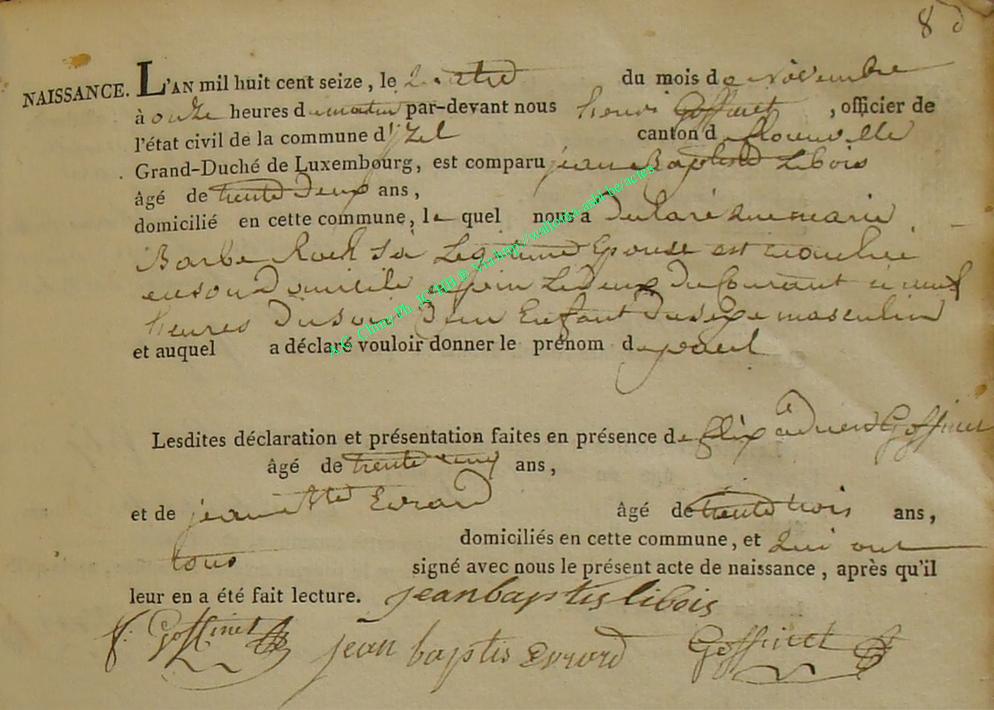 8
NAISSANCE. L'AN mil huit cent seize, le quatre du mois de novembre
à onze heures du matin par-devant nous henri Goffinet, officier de
l'état civil de la commune d'yzel canton de florenville
Grand-Duché de Luxembourg, est comparu jean Baptiste Lebois
âgé de trente deux ans,
domicilié en cette commune, le quel nous a declaré que marie
Barbe Roch sa Legitime Epouse est accouchée
en son domicile le deux du Courant a neuf
heures du soir d'un Enfant du sexe masculin
et auquel a déclaré vouloir donner le prénom de
Lesdites déclaration et présentation faites en présence de félix Goffinet
âgé de trente cinq ans,
et de jean Bte Evrard âgé de trente trois ans,
domiciliés en cette commune, et qui ont
tous signé avec nous le présent acte de naissance, après qu'il
leur en a été fait lecture. jeanbaptis libois
f: Goffinet jean baptis Evrard Goffinet